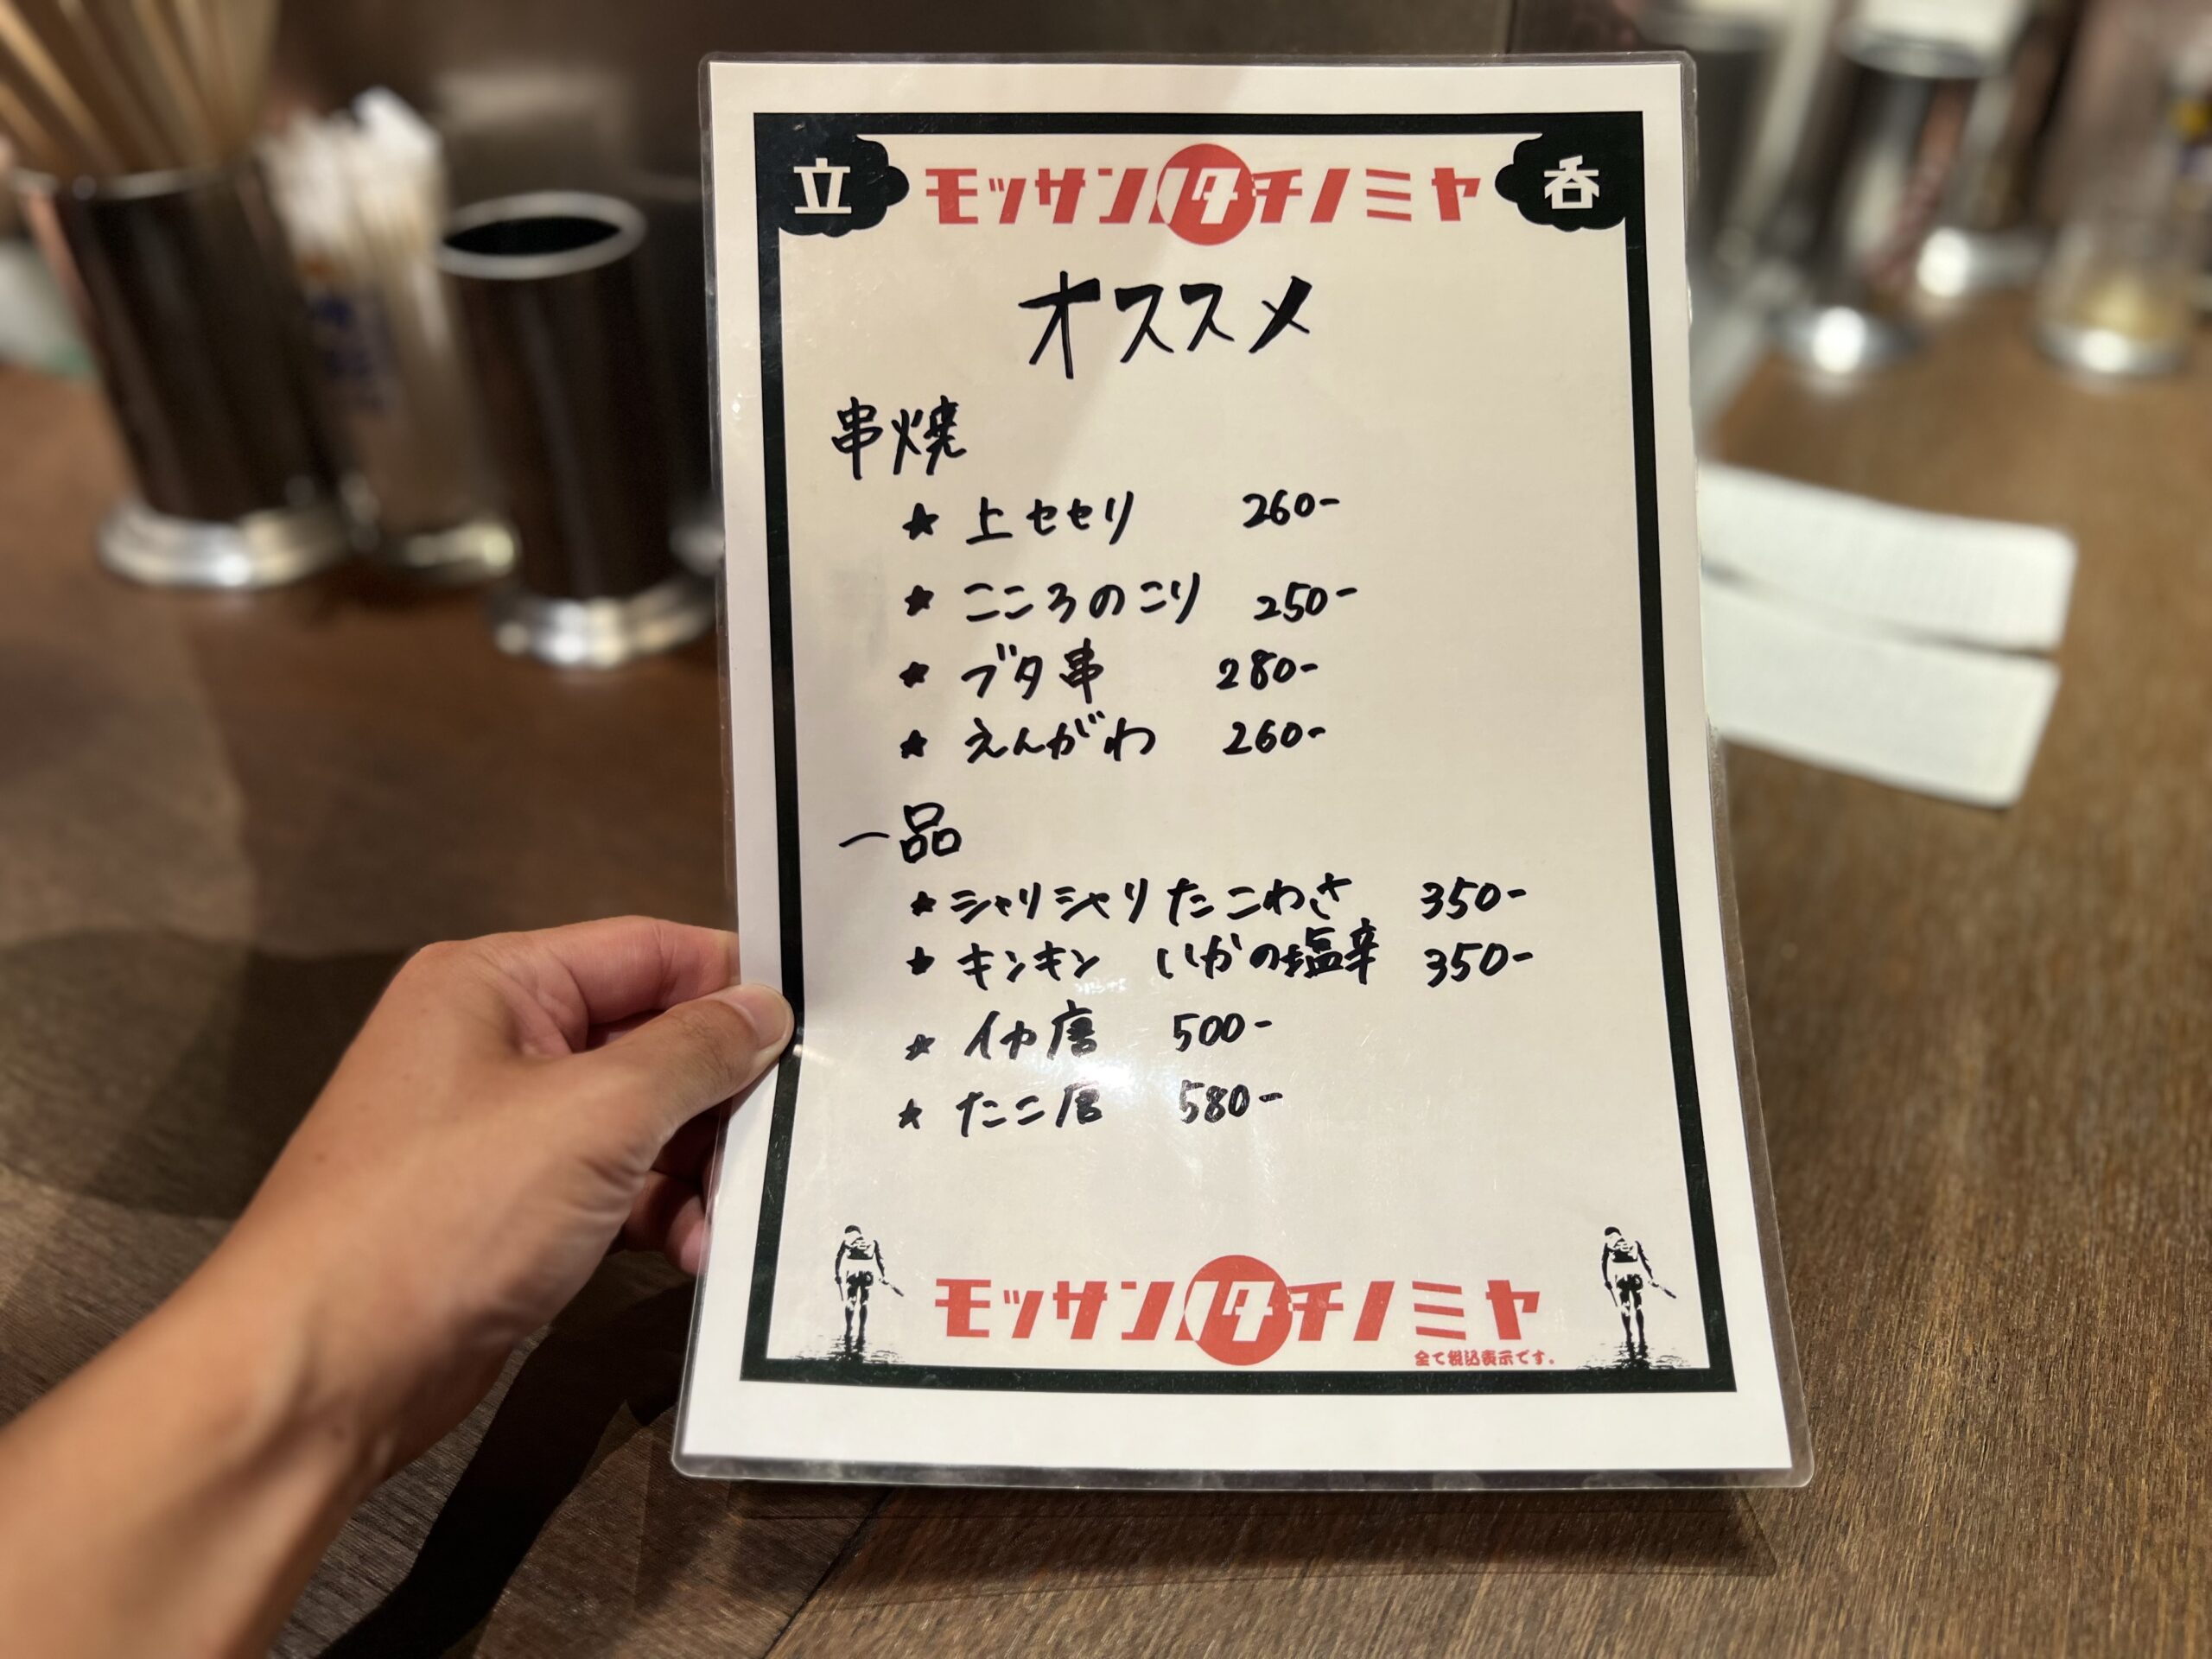 立 モッサンノタチノミヤ 呑
オススメ
串焼
★ 上セセリ 260-
★ こころのこり 250-
★ ブタ串 280-
★ えんがわ 260-
一品
★ シャリシャリたこわさ 350-
★ キンキン いかの塩辛 350-
★ イカ唐 500-
★ たこ唐 580-
モッサンノタチノミヤ
全て税込表示です。